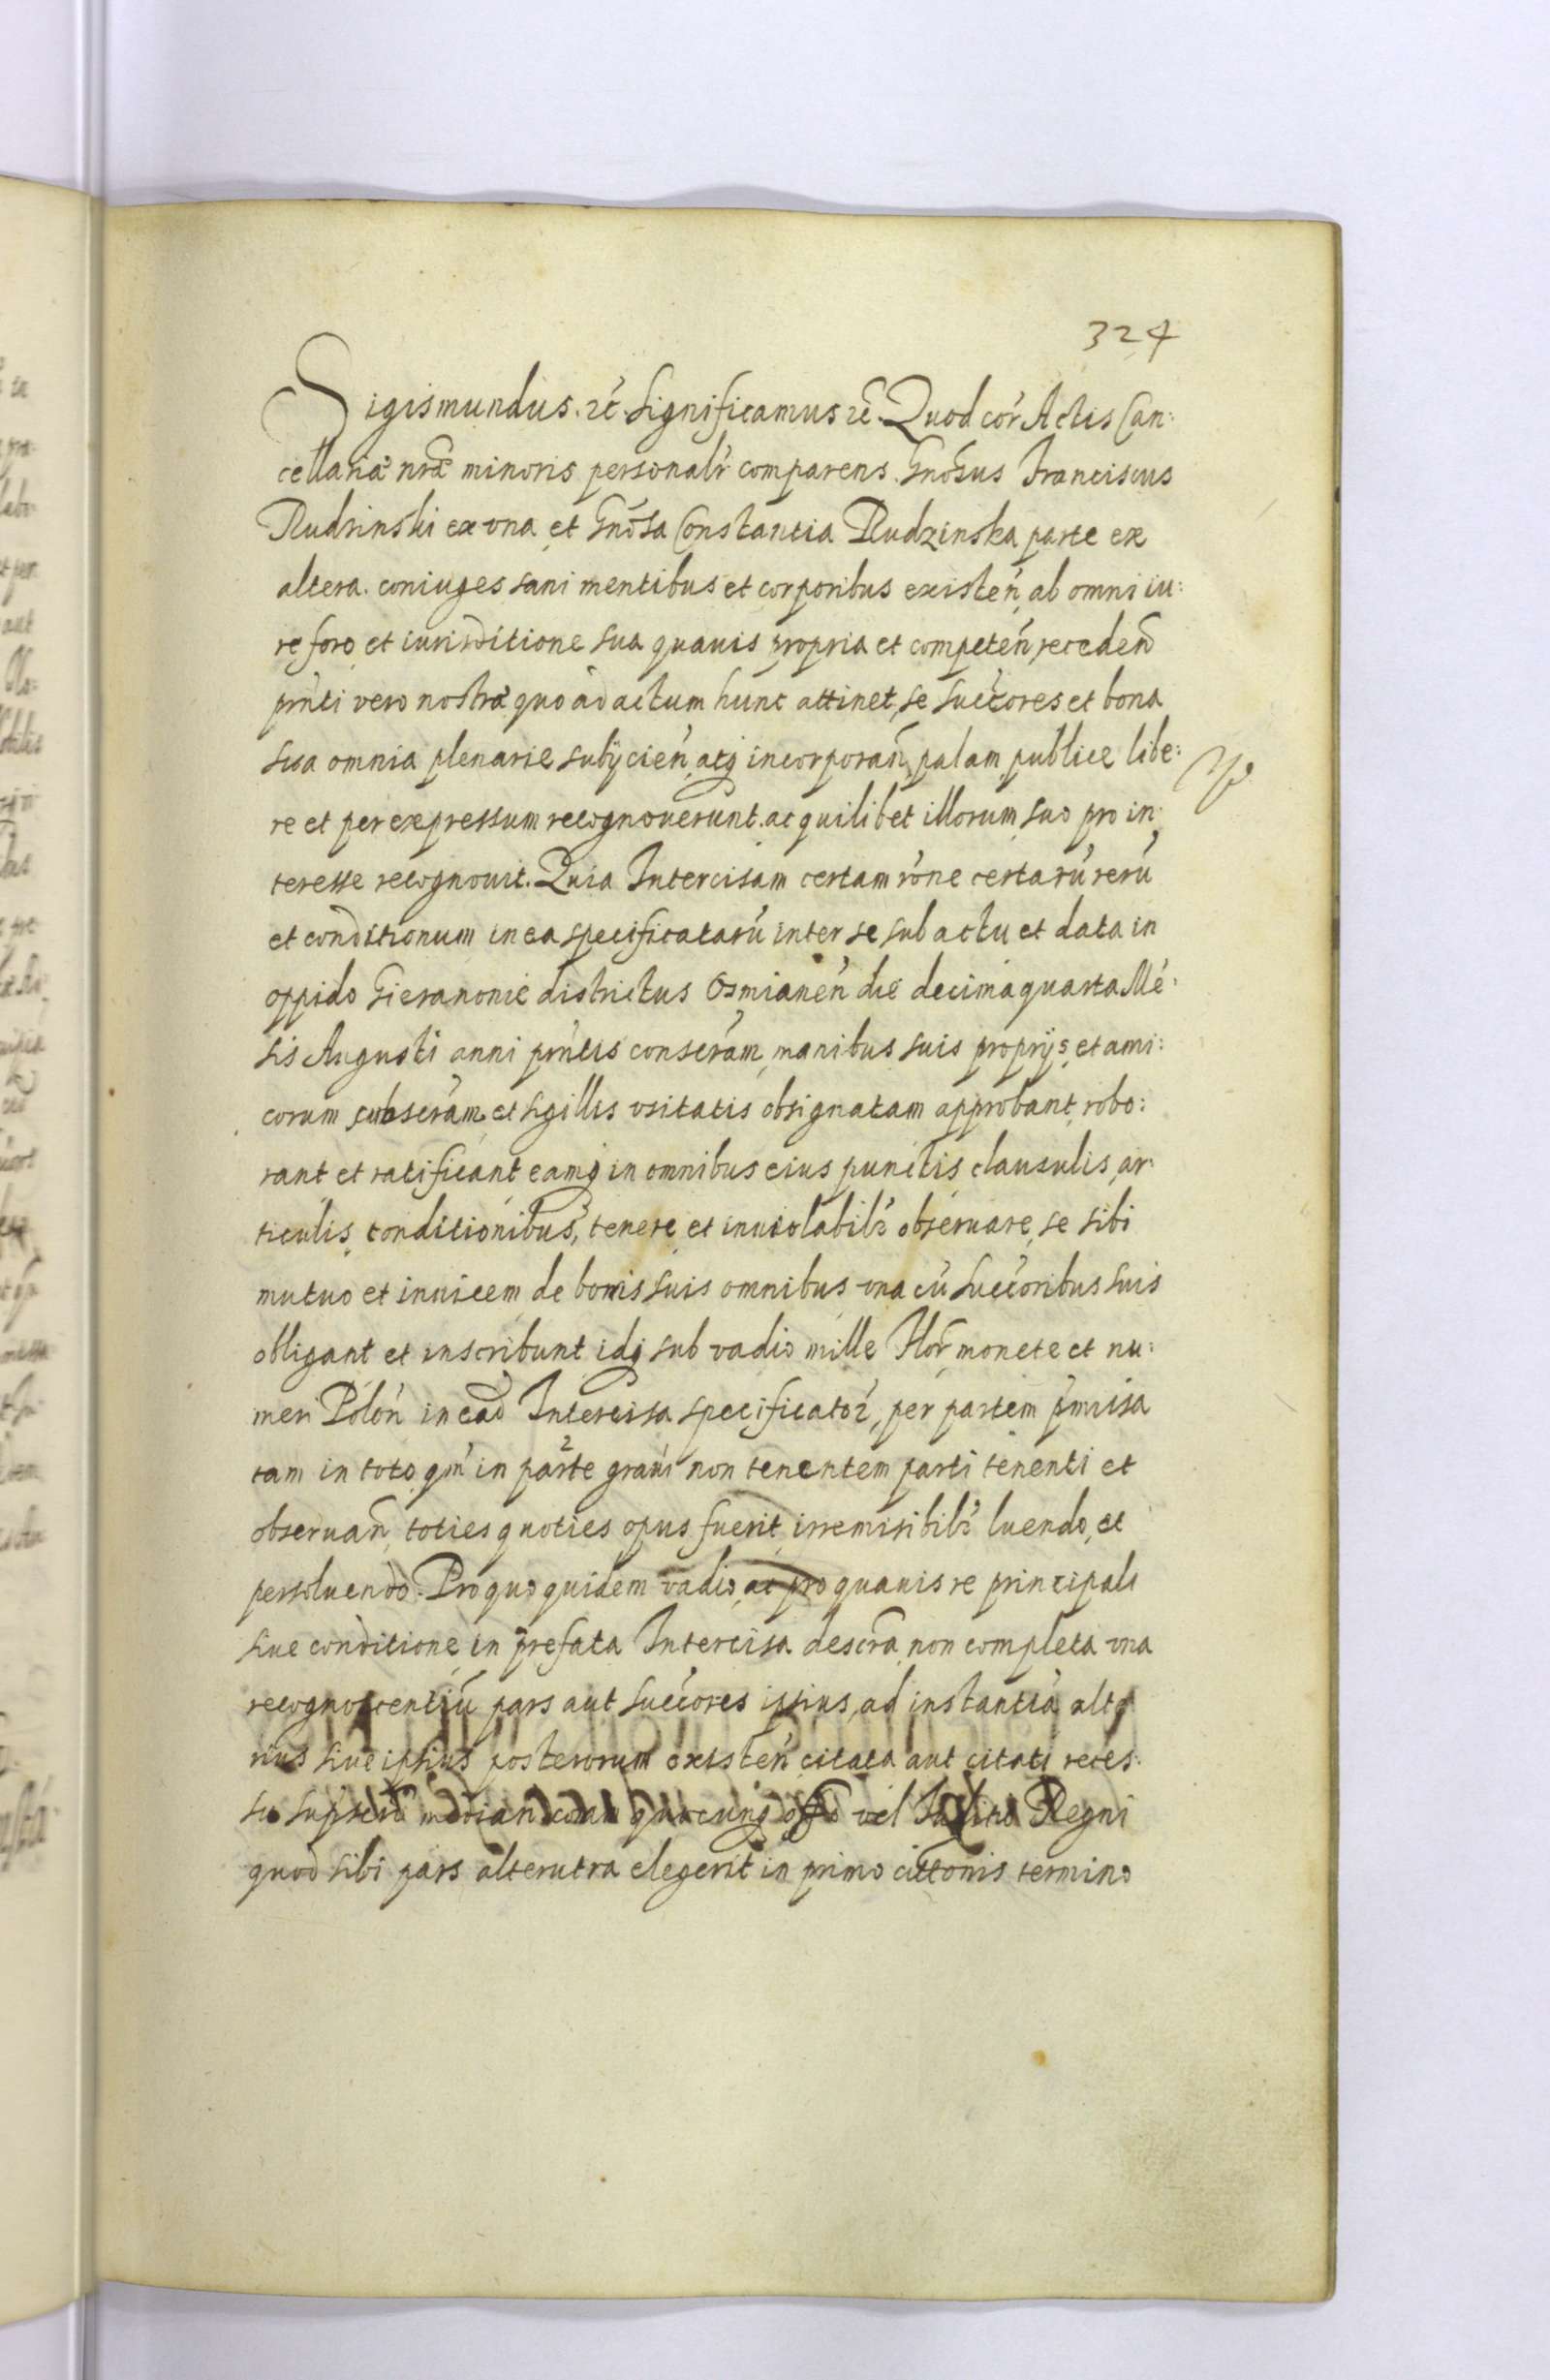 324
Sigismundus. etc̃. Significamus etc̃. Quod cor̃ Actis Can:
cellariæ nr̃æ minoris personalr̃ comparens. Gnõsus Franciscus
Rudzinski ex vna et Gnõsa Constantia Rudzinska parte ex
altera. coniuges sani mentibus et corporibus existeñ, ab omni iu:
re foro et iurisditione sua quauis propria et competeñ, recedeñ
prñti vero nostræ quo ad actum hunc attinet, se succ̃ores et bona
sua omnia plenarie subijcieñ, atq̃ incorporañ, palam publice libe:
re et per expressum recognouerunt. ac quilibet illorum suo pro in:
teresse recognouit. Quia Intercisam certam rõne certarũ rerũ
et conditionum in ea specificatarũ inter se sub actu et data in
oppido Gieranonie districtus Osmianeñ die decima quarta Mẽ:
sis Augusti anni prñtis conscr̃am, manibus suis proprijs, et ami:
corum subscr̃am et sigillis vsitatis obsignatam approbant, robo:
rant et ratificant eamq̃ in omnibus eius punctis clausulis, ar:
ticulis, conditionibus, tenere, et inuiolabilr̃ obseruare, se sibi
mutuo et inuicem de bonis suis omnibus vna cũ succ̃oribus suis
obligant et inscribunt idq̃ sub vadio mille Flor̃ monete et nu:
meri Poloñ in eãd Intercisa specificator̃, per partem p̃missa
tam in toto qm̃ in parte 2 grañi non tenentem parti tenenti et
obseruañ, toties quoties opus fuerit, irremisibilr̃ luendo, et
persoluendo. Pro quo quidem vadio, ac pro quauis re principali
siue conditione in p̃refata Intercisa descr̃a non completa vna
recognoscentiũ pars aut succ̃ores ipsius, ad instantiã alte
rius siue ipsius posterorum existeñ citata aut citati reces:
su quocunq̃ offo vel Regni
quod sibi pars alterutra elegerit in primo cittonis termino